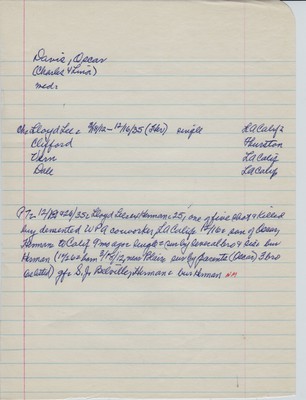 Davis, Oscar
(Charles & Lina)
meds
Chr Lloyd Lee 2/19/12 - 12/16/35 (Her) single LACalif
Clifford Thurston
Vern LACalif
Dale LACalif
12/19 & 26/35: Lloyd Lee Herman 25, one of five shot & killed
by demented WPA coworker, LACalif 12/16 son of Oscar,
Herman to Calif 9 mos ago single sur by several bro & sis bur
Herman born near Blair sur by parents (Oscar) 3 bro
(as listed) gfr S. Jr Belville, Herman bur Herman